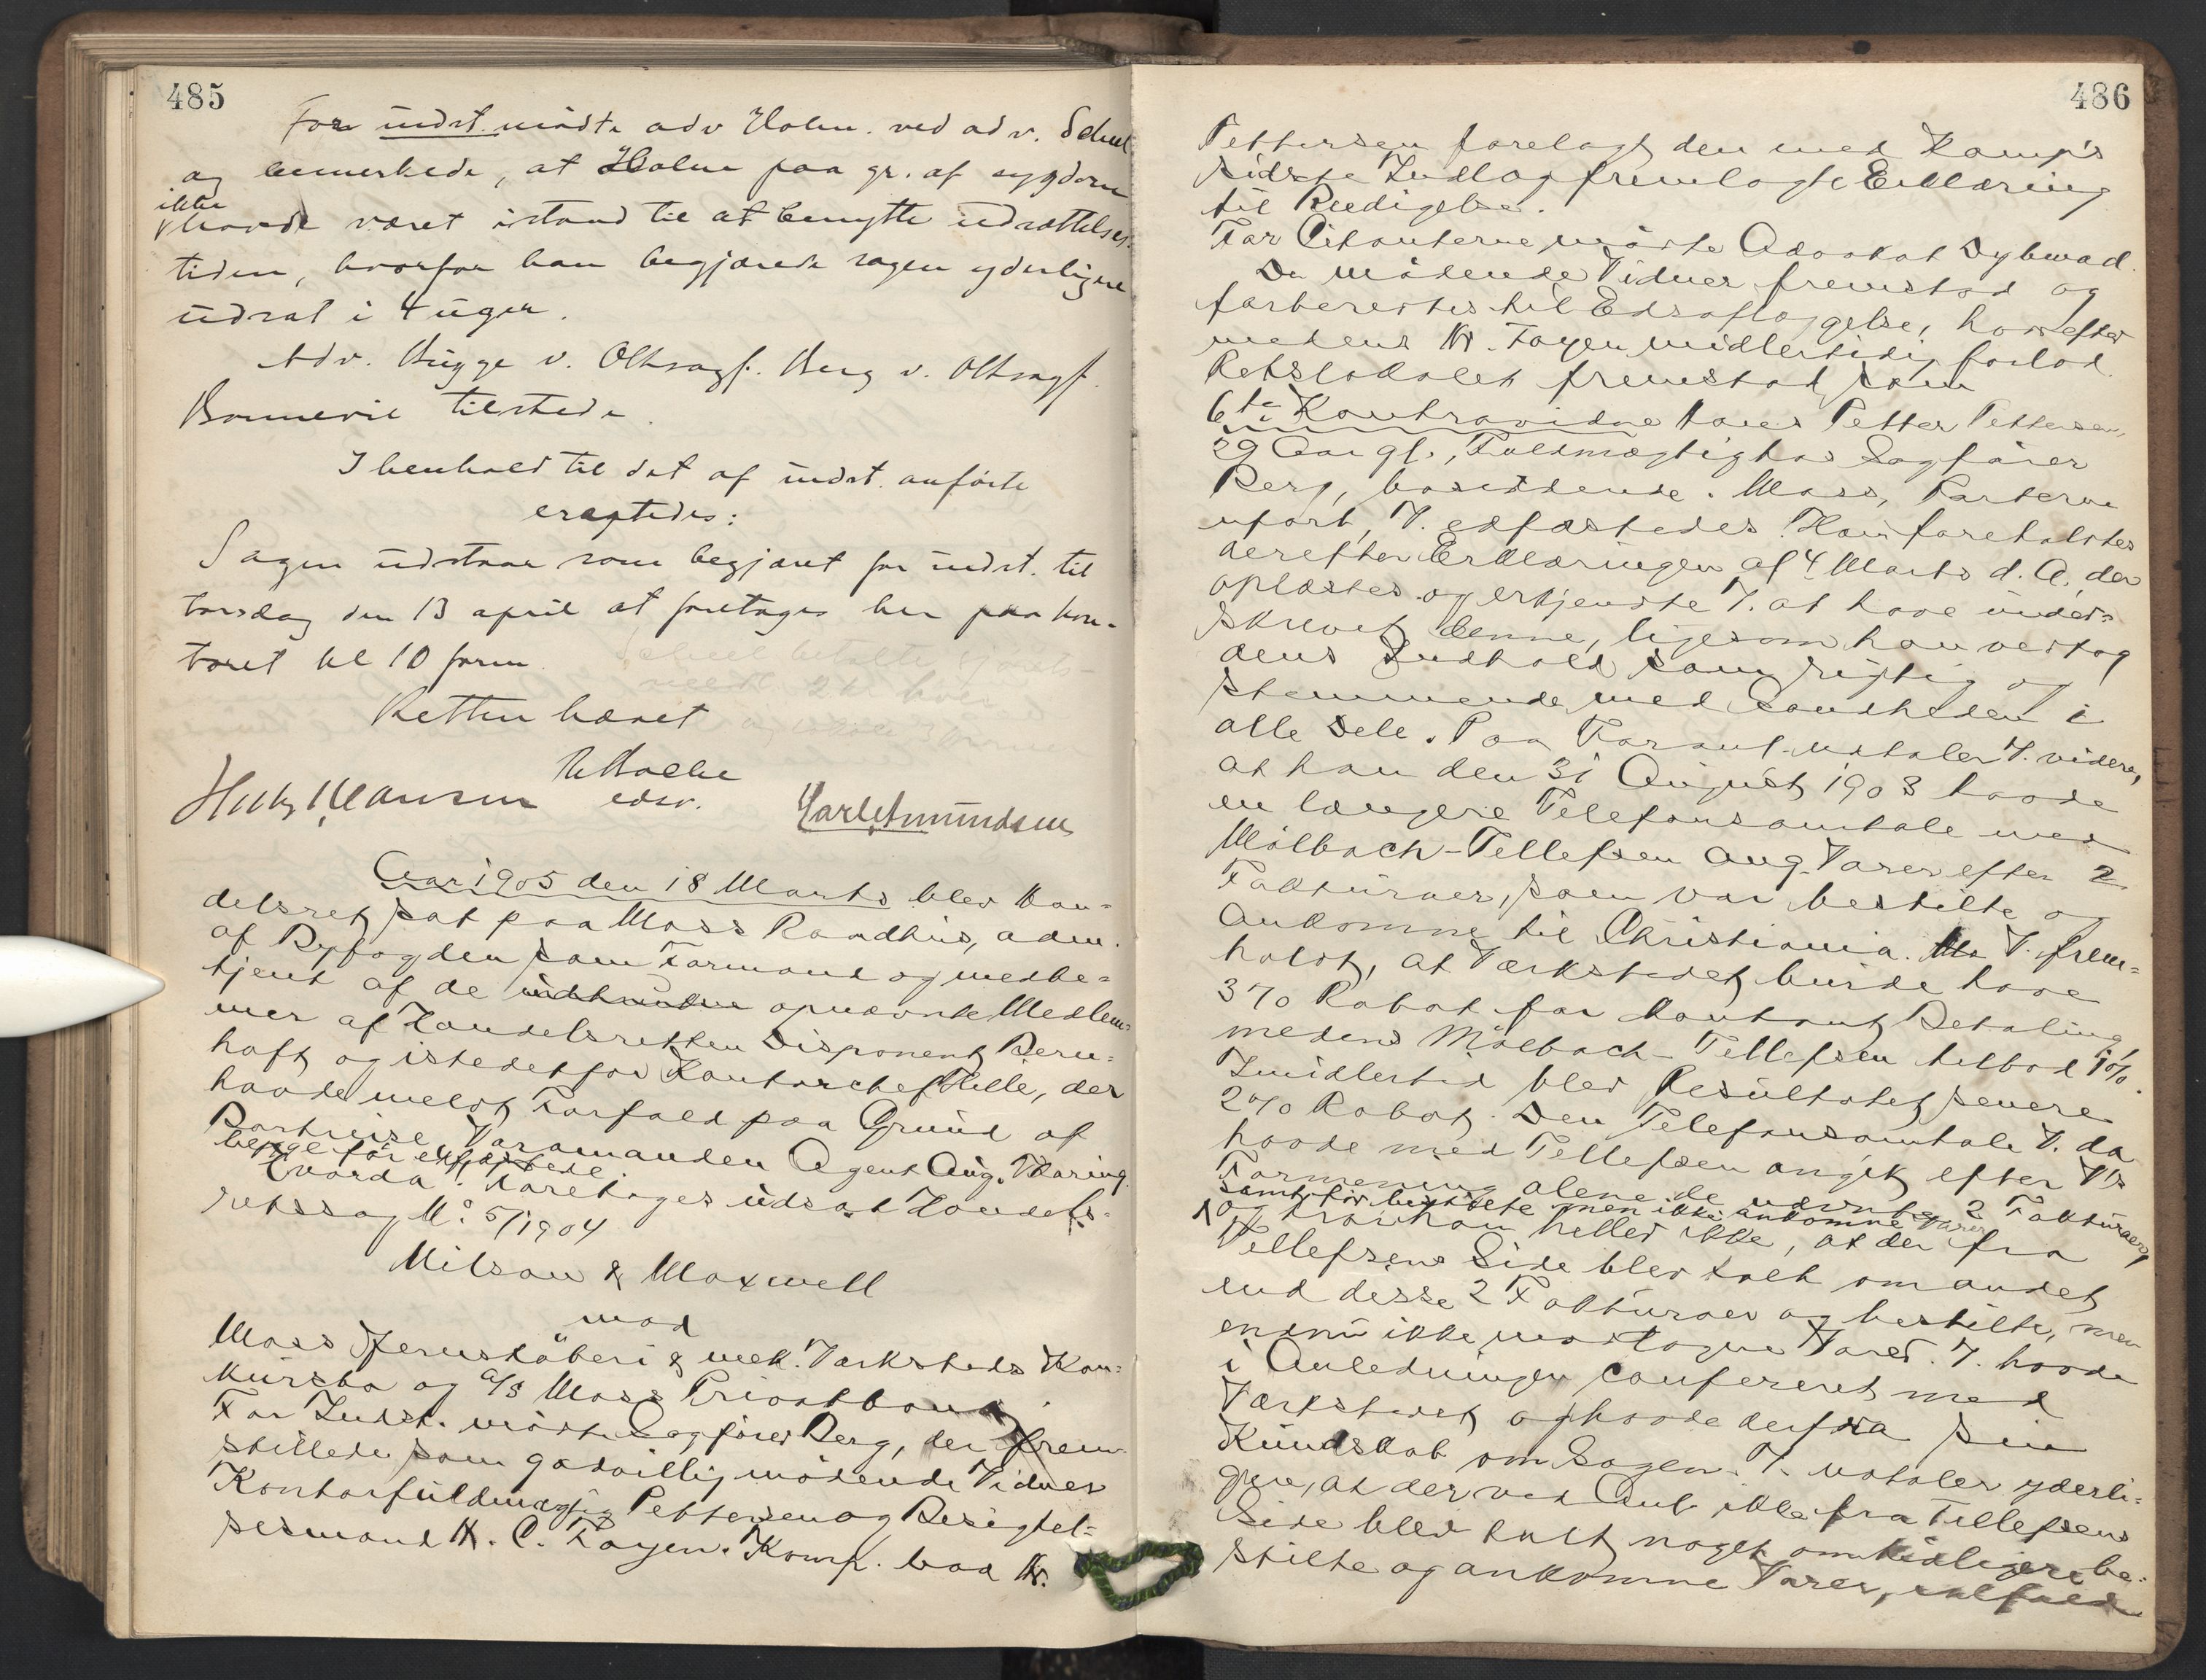 485
For indst. mødte adv Holm. ved adv. Scheel
og bemerkede, at Holm paa gr. af sygdom
ikke
havde været istand til at benytte udsættelses-
tiden, hvorfor han begjærede sagen yderligere
udsat i 4 uger.
Adv. Bugge v. Oltsagf. Berg v. Oltsagf.
Bonnevie tilstede.
I henhold til det af indst. anførte
eragtedes:
Sagen udstaar som begjæret for indst. til
torsdag den 13 april at foretages her paa kon-
toret kl 10 form.
Retten hævet
edsv.
Carl Amundsen
Aar 1905 den 18 Marts blev Han=
delsret sat paa Moss Raadhus, adm.
af Byfogden som Formand og medbe=
tjent af de opnævnte Medlem=
mer af Handelsretten Disponent Bern=
hoft og istedetfor Kontorchef Hille, der
havde meldt Forfald paa Grund af
Bortreise, Varamanden Agent Aug. Thaning.
begge før edfæstede.
Hvorda: Foretages udsat Handels=
retssag No. 5/1904
Wilson & Maxwell
mod
Moss Jernstøberi & mek. Værksteds Kon=
kursbo og A/S Moss Privatbank.
For Indst. mødte Sagfører Berg, der frem=
stillede som godvillig mødende Vidner
Kontorfuldmægtig Pettersen og Besigtel=
sesmand H. C. Foyen. Komp. bad Hr.
486
Pettersen forelagt den med Komp's
sidste Indlæg fremlagte Erklæring
til Bedigelse.
For Citanterne mødte Advokat Dybwad.
De mødende Vidner fremstod og
forberedtes til Edsaflæggelse, hvorefter
medens Hr. Foyen midlertidig forlod
Retslokalet fremstod som
6te Kontravidne Lares Petter Pettersen,
29 Aar gl., Fuldmægtig hos Sagfører
Berg, bosiddende i Moss, Parterne
uforb, V. edfæstedes. Han foreholdtes
derefter Erklæringen af 4 Marts d. A., der
oplæstes og erkjendte V. at have under=
skrevet denne, ligesom han vedtog
dens Indhold som rigtig og
stemmende med Sandheden i
alle Dele. Paa Foranl. udtaler V. videre,
at han den 31 August 1903 havde
en længere Telefonsamtale med
Mølbach-Tellefsen ang. Varer efter 2
Fakturaer, som var bestilte og
ankomne til Christiania. V. frem=
holdt, at Værkstedet burde have
3% Rabat for Kontant Betaling,
medens Mølbach-Tellefsen tilbød 1%.
Imidlertid blev Resultatet senere
2% Rabat. Den Telefonsamtale V. da
havde med Tellefsen angik efter V's
Formening alene de nævnte 2 Fakturaer,
samt før bestilte men ikke ankomne Varer
og tror han heller ikke, at der fra
Tellefsens Side blev talt om andet
end disse 2 Fakturaer og bestilte, men
endnu ikke modtagne Varer. V. havde
i Anledningen confereret med
Værkstedet og havde derfra sin
Kundskab om Sagen. V. udtaler yderli=
gere, at der ved Anl. ikke fra Tellefsens
Side blev talt noget om tidligere be=
stilte og ankomne Varer, ialfald